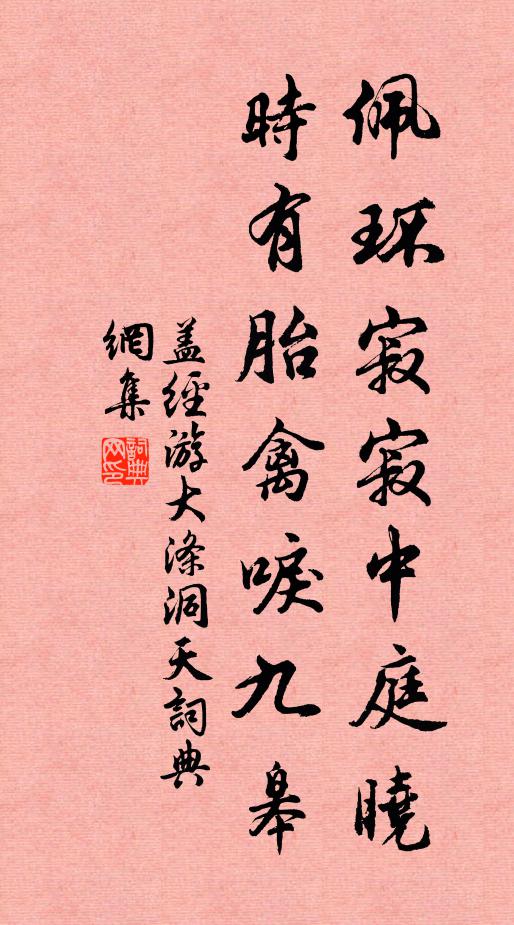 佩环寂寂中庭曉
時有胎禽唳九皋
盖經游大滌洞天詞典
網集
詞典网印